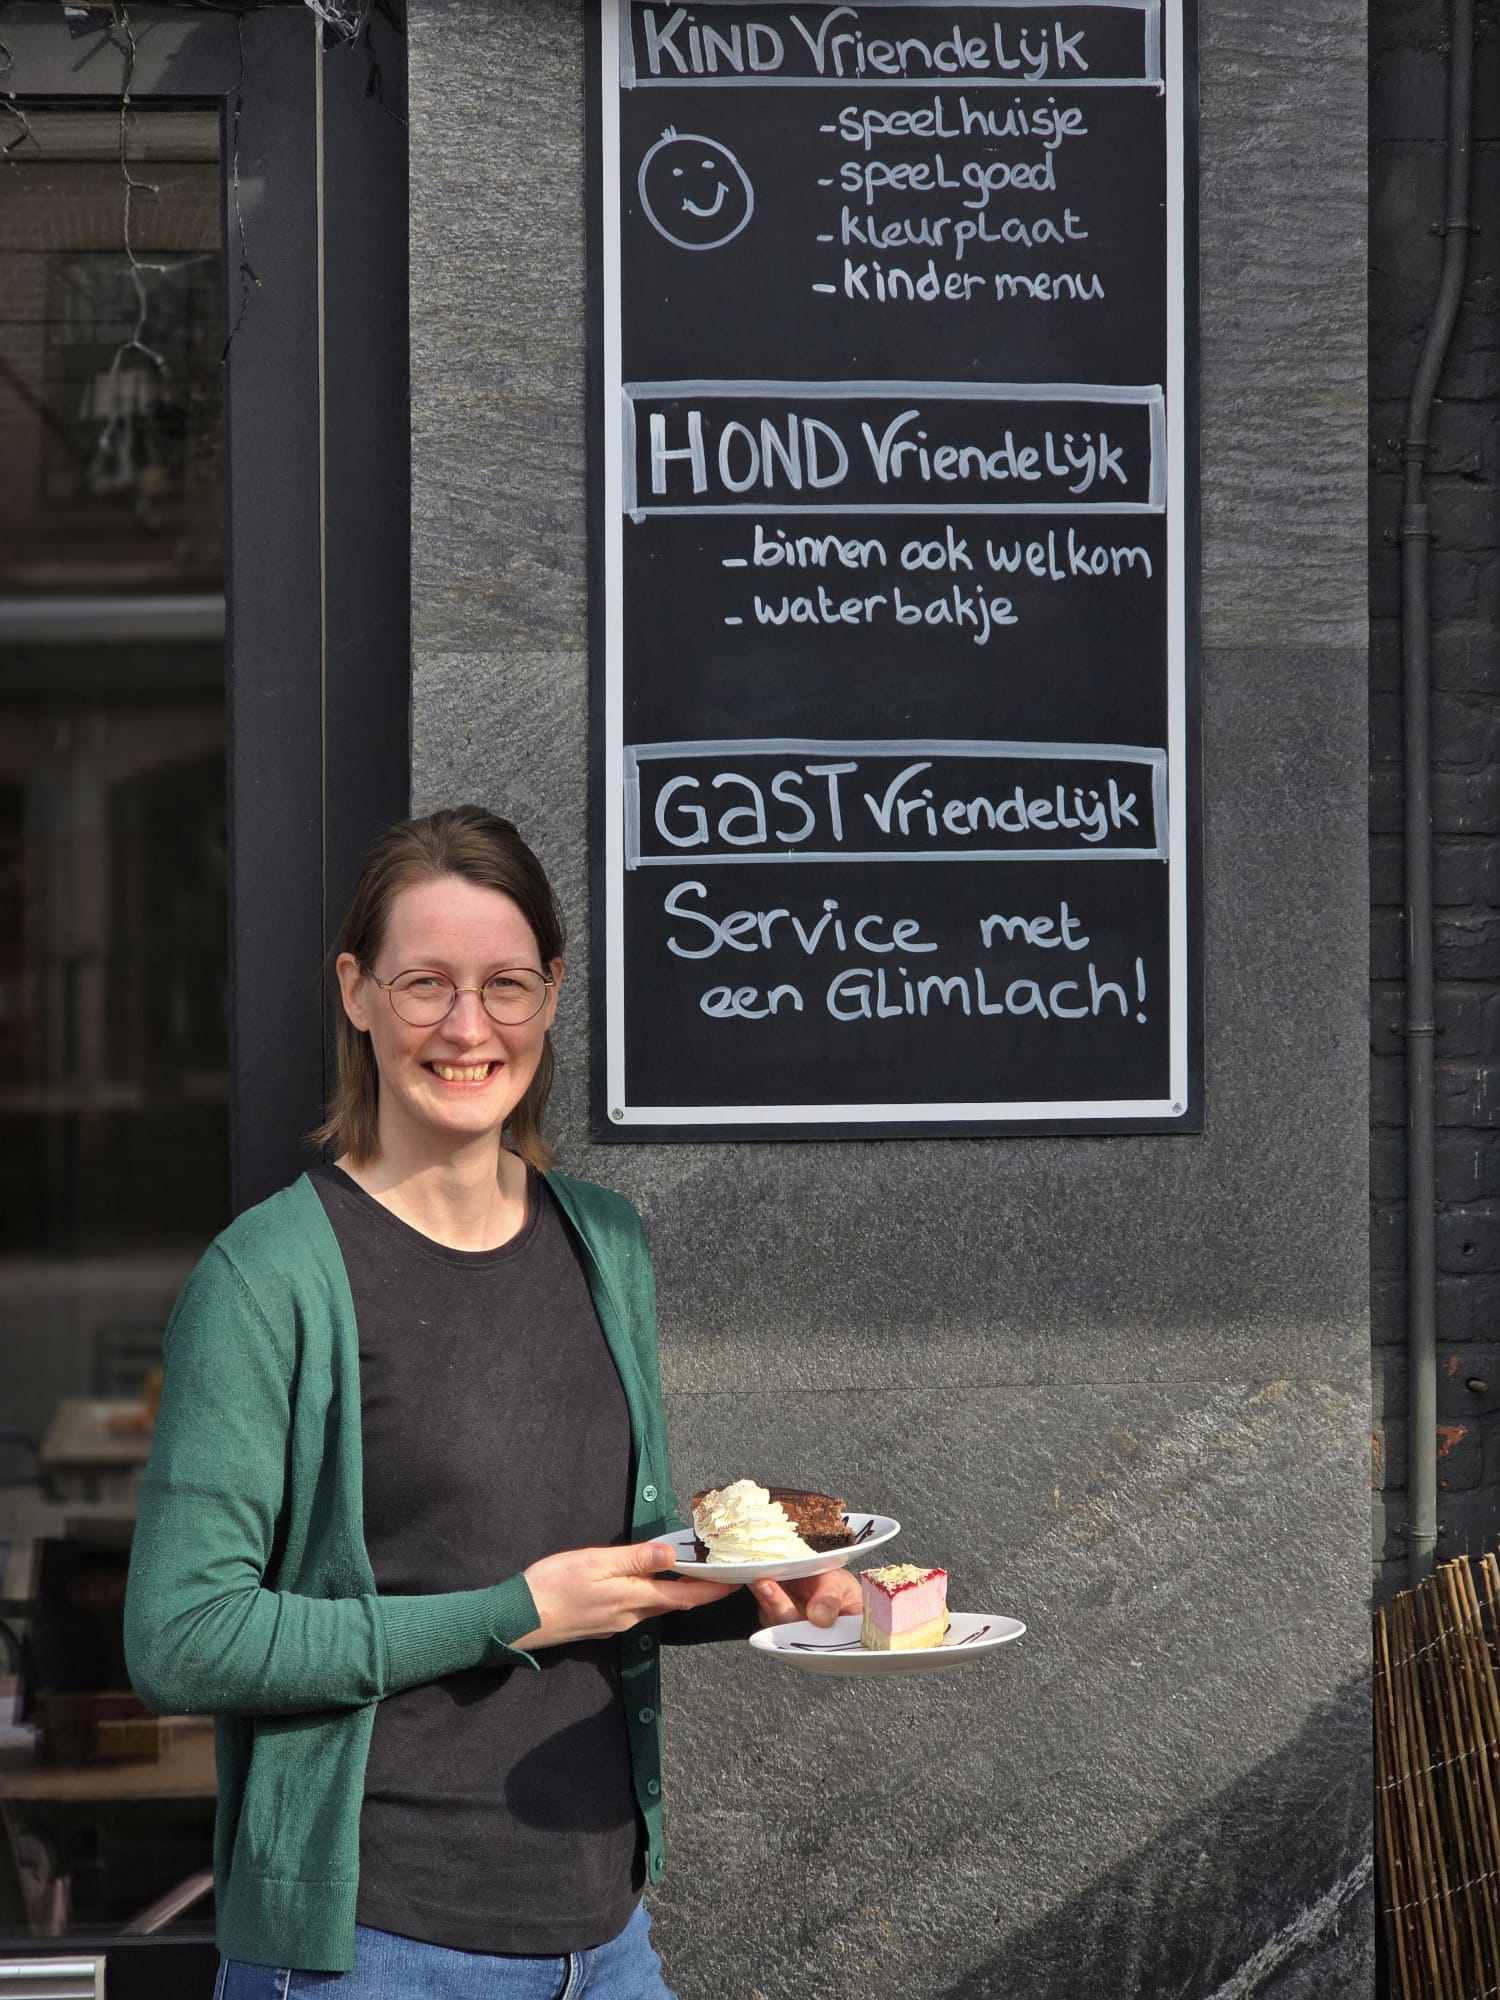 KIND Vriendelijk
- speelhuisje
- speelgoed
- kleurplaat
- kinder menu
HOND Vriendelijk
- binnen ook welkom
- waterbakje
GaST Vriendelijk
Service met
een GLimLach!